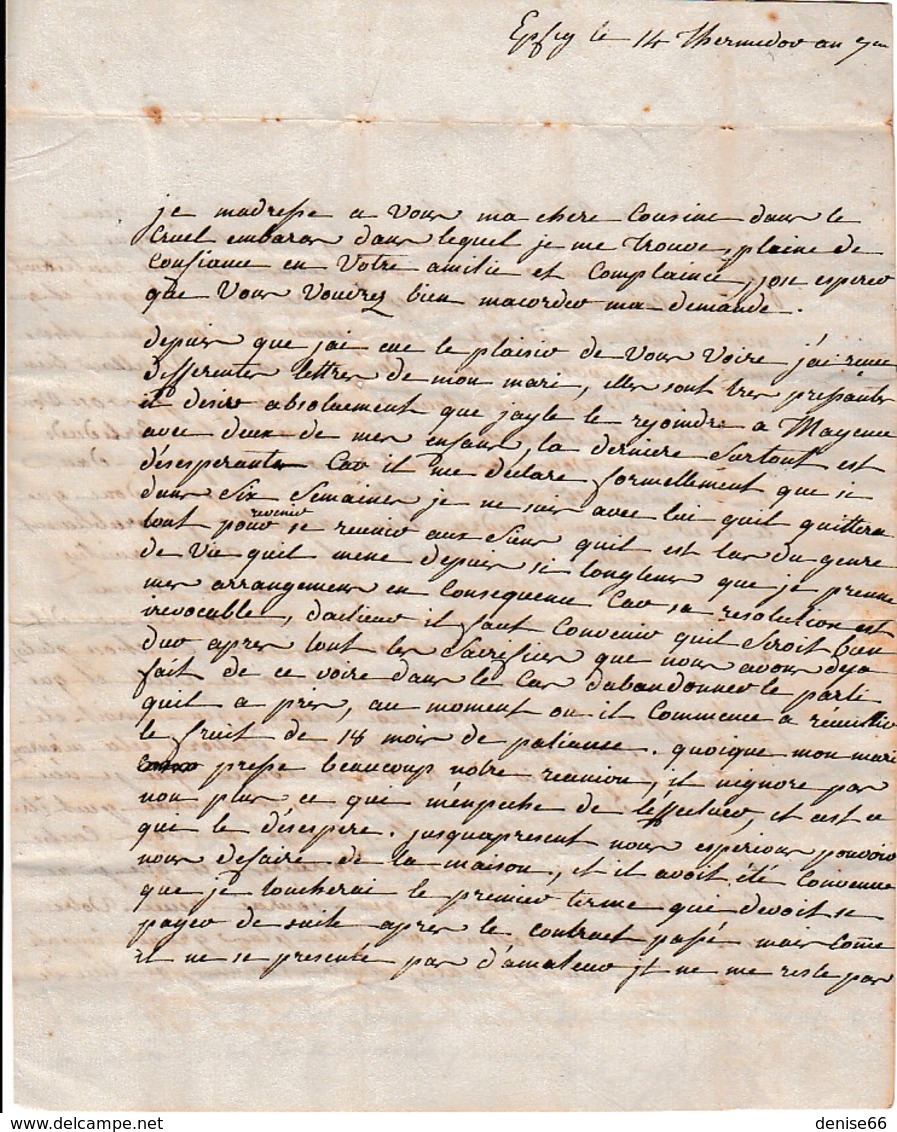 Epfig le 14 Thermidor an 7me
je madresse a Vous ma chere Cousine dans le
Cruel embaras dans lequel je me trouve, plaine de
Confiance en Votre amitié et Complaince, jose esperer
que Vous Voudrez bien macorder ma demande.
depuis que jai eue le plaisir de Vous Voire j'ai reçue
differentes lettres de mon mari, elles sont tres pressantes
il desire absoluement que jaylle le rejoindre a Mayence
avec deux de mes enfans, la derniere Surtout est
désesperante Car il me déclare formellement que si
dans Six Semaines je ne suis avec lui quil quittera
tout pour revenir se reunir aux Siens quil est las du genre
de Vie quil mene depuis si longtems que je prenne
mes arrangemens en Consequence Car sa resolution est
irevocable, dailieur il faut Convenir quil Seroit bien
dur apres tout les Sacrefices que nous avons deja
fait de ce voire dans le Cas dabandonner le parti
quil a pris, au moment ou il Commence a réceuillir
le fruit de 18 mois de patiense. quoique mon mari
presse beaucoup notre reunion, il nignore pas
non plus ce qui m'enpeche de l'effectuer, et cest ce
qui le désespere. jusquapresent nous esperions pouvoir
nous defaire de la maison, et il avoit été Convenue
que je toucherai le premier terme qui devoit se
payer de suite apres le contract passé mais come
il ne se presente pas d'amateur il ne me reste pas
denise66